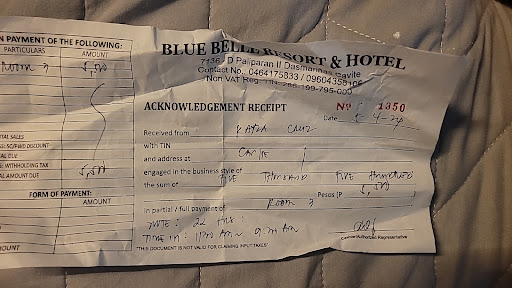 N PAYMENT OF THE FOLLOWING:
PARTICULARS AMOUNT
Room 3 5,500
TAL SALES
SC/PWD DISCOUNT
TAL DUE
WITHHOLDING TAX
TAL AMOUNT DUE 5,500
FORM OF PAYMENT:
AMOUNT
AMOUNT
BLUE BELLE RESORT & HOTEL
7136 D Paliparan II Dasmarinas Cavite
Contact No.: 0464175833 / 09604358106
Non VAT Reg. TIN-286-199-795-000
ACKNOWLEDGEMENT RECEIPT
No 1350
DATE 5-4-24
Received from Cruz
with TIN
and address at Cavite
engaged in the business style of
the sum of Five Thousand Five Hundred
Pesos (P 5,500)
In partial / full payment of Room 3
NOTE: 22 hrs.
TIME IN: 11:00 AM 9:00 AM
Cashier/Authorized Representative
"THIS DOCUMENT IS NOT VALID FOR CLAIMING INPUT TAXES"